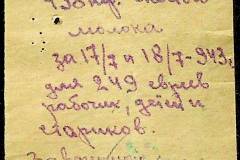 молока
за 17/7 и 18/7-943,
для 249 евреев
рабочих, детей и
стариков.